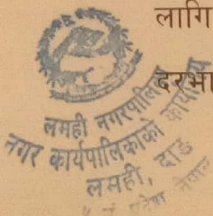 लागि
दरभा
लमही नगरपालिका
नगर कार्यपालिकाको कार्यालय
लमही, दाङ